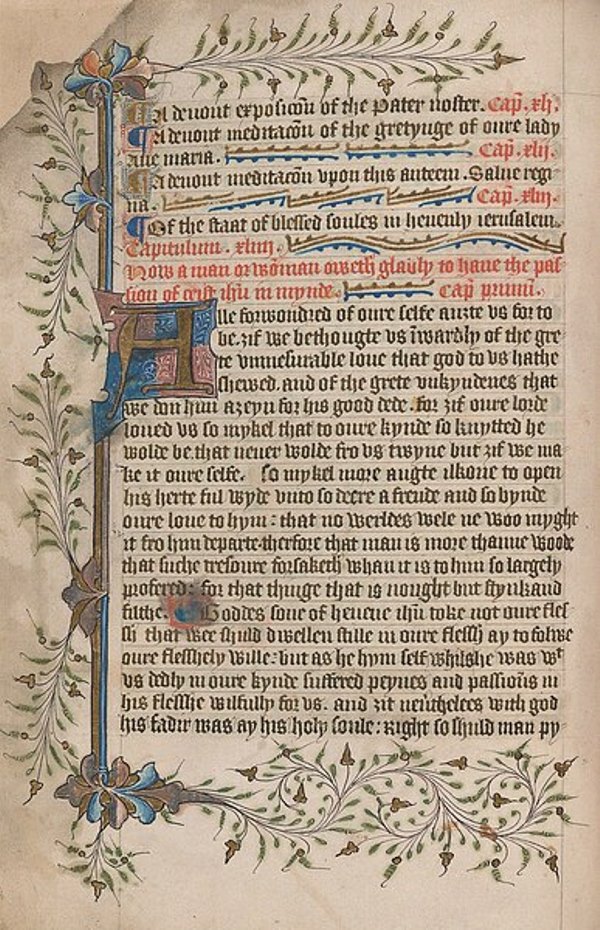 A deuout exposicōn of the Pater noster. Cap̄. xlj.
A deuout meditacōn of the gretynge of oure lady
aue maria. Cap̄. xlij.
A deuout meditacōn vpon this anteem. Salue regi
na. Cap̄. xliij.
Of the staat of blessed soules in heuenly ierusalem.
Capitulum. xliiij.
How a man or wōman oweth gladly to haue the pas
sion of crist ihū in mynde. Cap̄ primū.
Alle forwondred of oure selfe auzte vs for to
be. zif we bethougte vs īwardly of the gre
te vnmesurable loue that god to vs hathe
shewed. and of the grete vnkyndenes that
we don him azeyn for his good dede. for zif oure lorde
loued vs so mykel that to oure kynde so knytted he
wolde be. that neuer wolde fro vs twyne but zif we ma
ke it oure selfe. so mykel more augte ilkone to open
his herte ful wyde vnto so deere a frende and so bynde
oure loue to hym: that no werldes wele ne woo myght
it fro him departe. therfore that man is more thanne woode
that suche tresoure forsaketh whan it is to him so largely
profered: for that thinge that is nought but stynk and
filthe. Goddes sone of heuene ihū toke not oure fles
sh that wee shuld dwellen stille in oure flessh ay to folwe
oure flesshely wille: but as he hym self whilshe was wᵗ
vs dedly in oure kynde suffered peynes and passioūs in
his flesshe wilfully for vs. and zit neūthelees with god
his fadir was ay his holy soule: Right so shuld man py